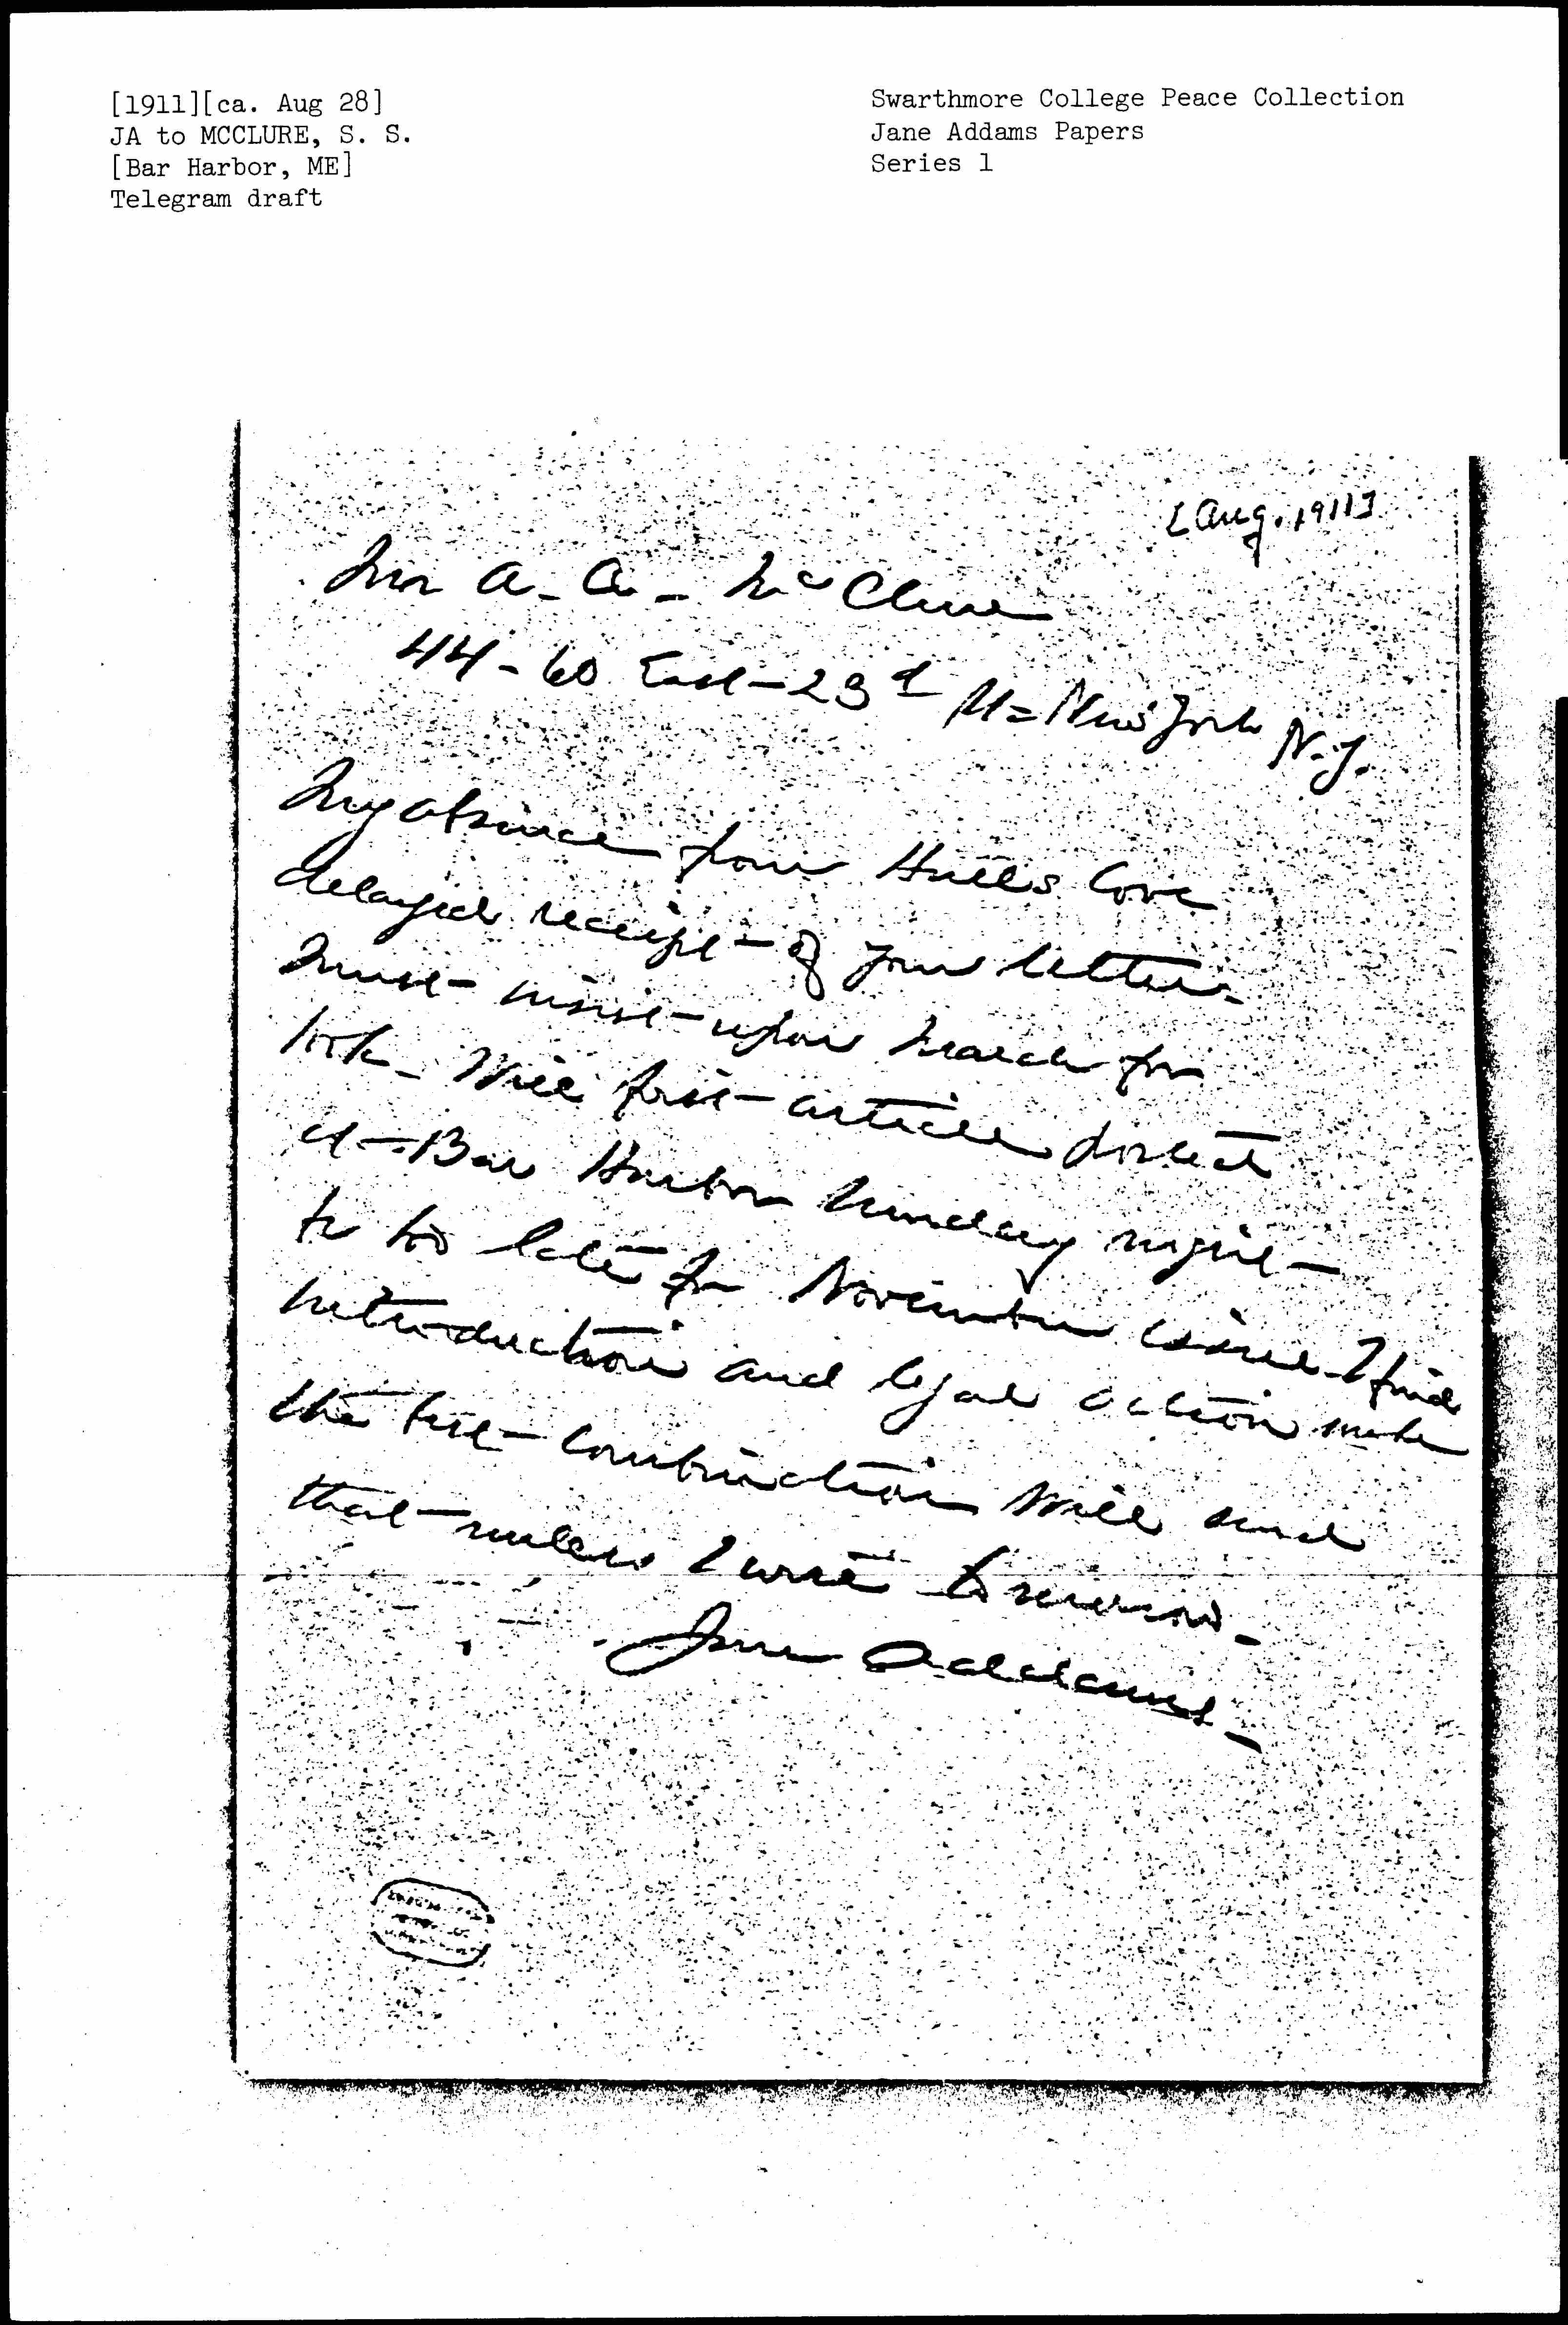 [1911][ca. Aug 28]
JA to MCCLURE, S. S.
[Bar Harbor, ME]
Telegram draft
Swarthmore College Peace Collection
Jane Addams Papers
Series 1
[Aug. 1911]
Mr McClure
44-60 East - 23d St = New York N.Y.
My absence from Hulls Cove
delayed receipt - of your letter -
must - insist - upon March for
book - Will first - article posted
at - Bar Harbor Sunday night -
be too late for November issue - I find
introduction and legal action make
the best - combination will send
that - unless I wire tomorrow -
Jane Addams -